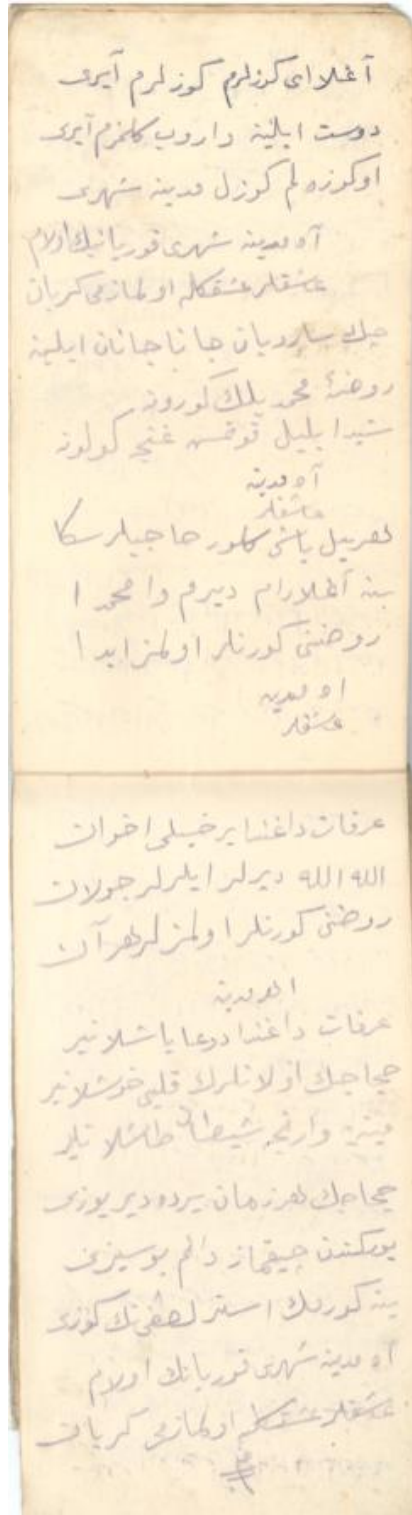 آغلا ای کوزلرم کوزلرم آیری
دوست ایلینه واروب کلمزم آیری
اوکوزه لم کوزل مدینه شهری
آه مدینه شهری قوربانیك اولام
عشقلر عشقكله اولمازمی کریان
جانا جانان ایلینه
روضۀ محمد یلك کورونه
شیدا بلبل قونمش غنچه کولونه
آه مدینه
عشقلر
هرییل باشی کلور حاجیلر سکا
بنه آغلارام دیرم وا محمدا
روضنی کورنلر اولمز ابدا
اه مدینه
عشقلر
عرفات داغندا بر خیلی اخوان
الله الله دیرلر ایلرلر جولان
روضنی کورنلر اولمزلر هر آن
اه مدینه
عرفات داغندا دوعا باشلانیر
حجاجك اولانلرك قلبی خوشلانیر
وارنجه شیطان طاشلانیر
حجاجك هر زمان یرده دیر یوزی
یورکندن چیقماز دائم بو سیزی
ینه کورمك استر لطفی نك کوزی
آه مدینه شهری قوربانك اولام
عشقلر عشقكله اولمازمی کریان